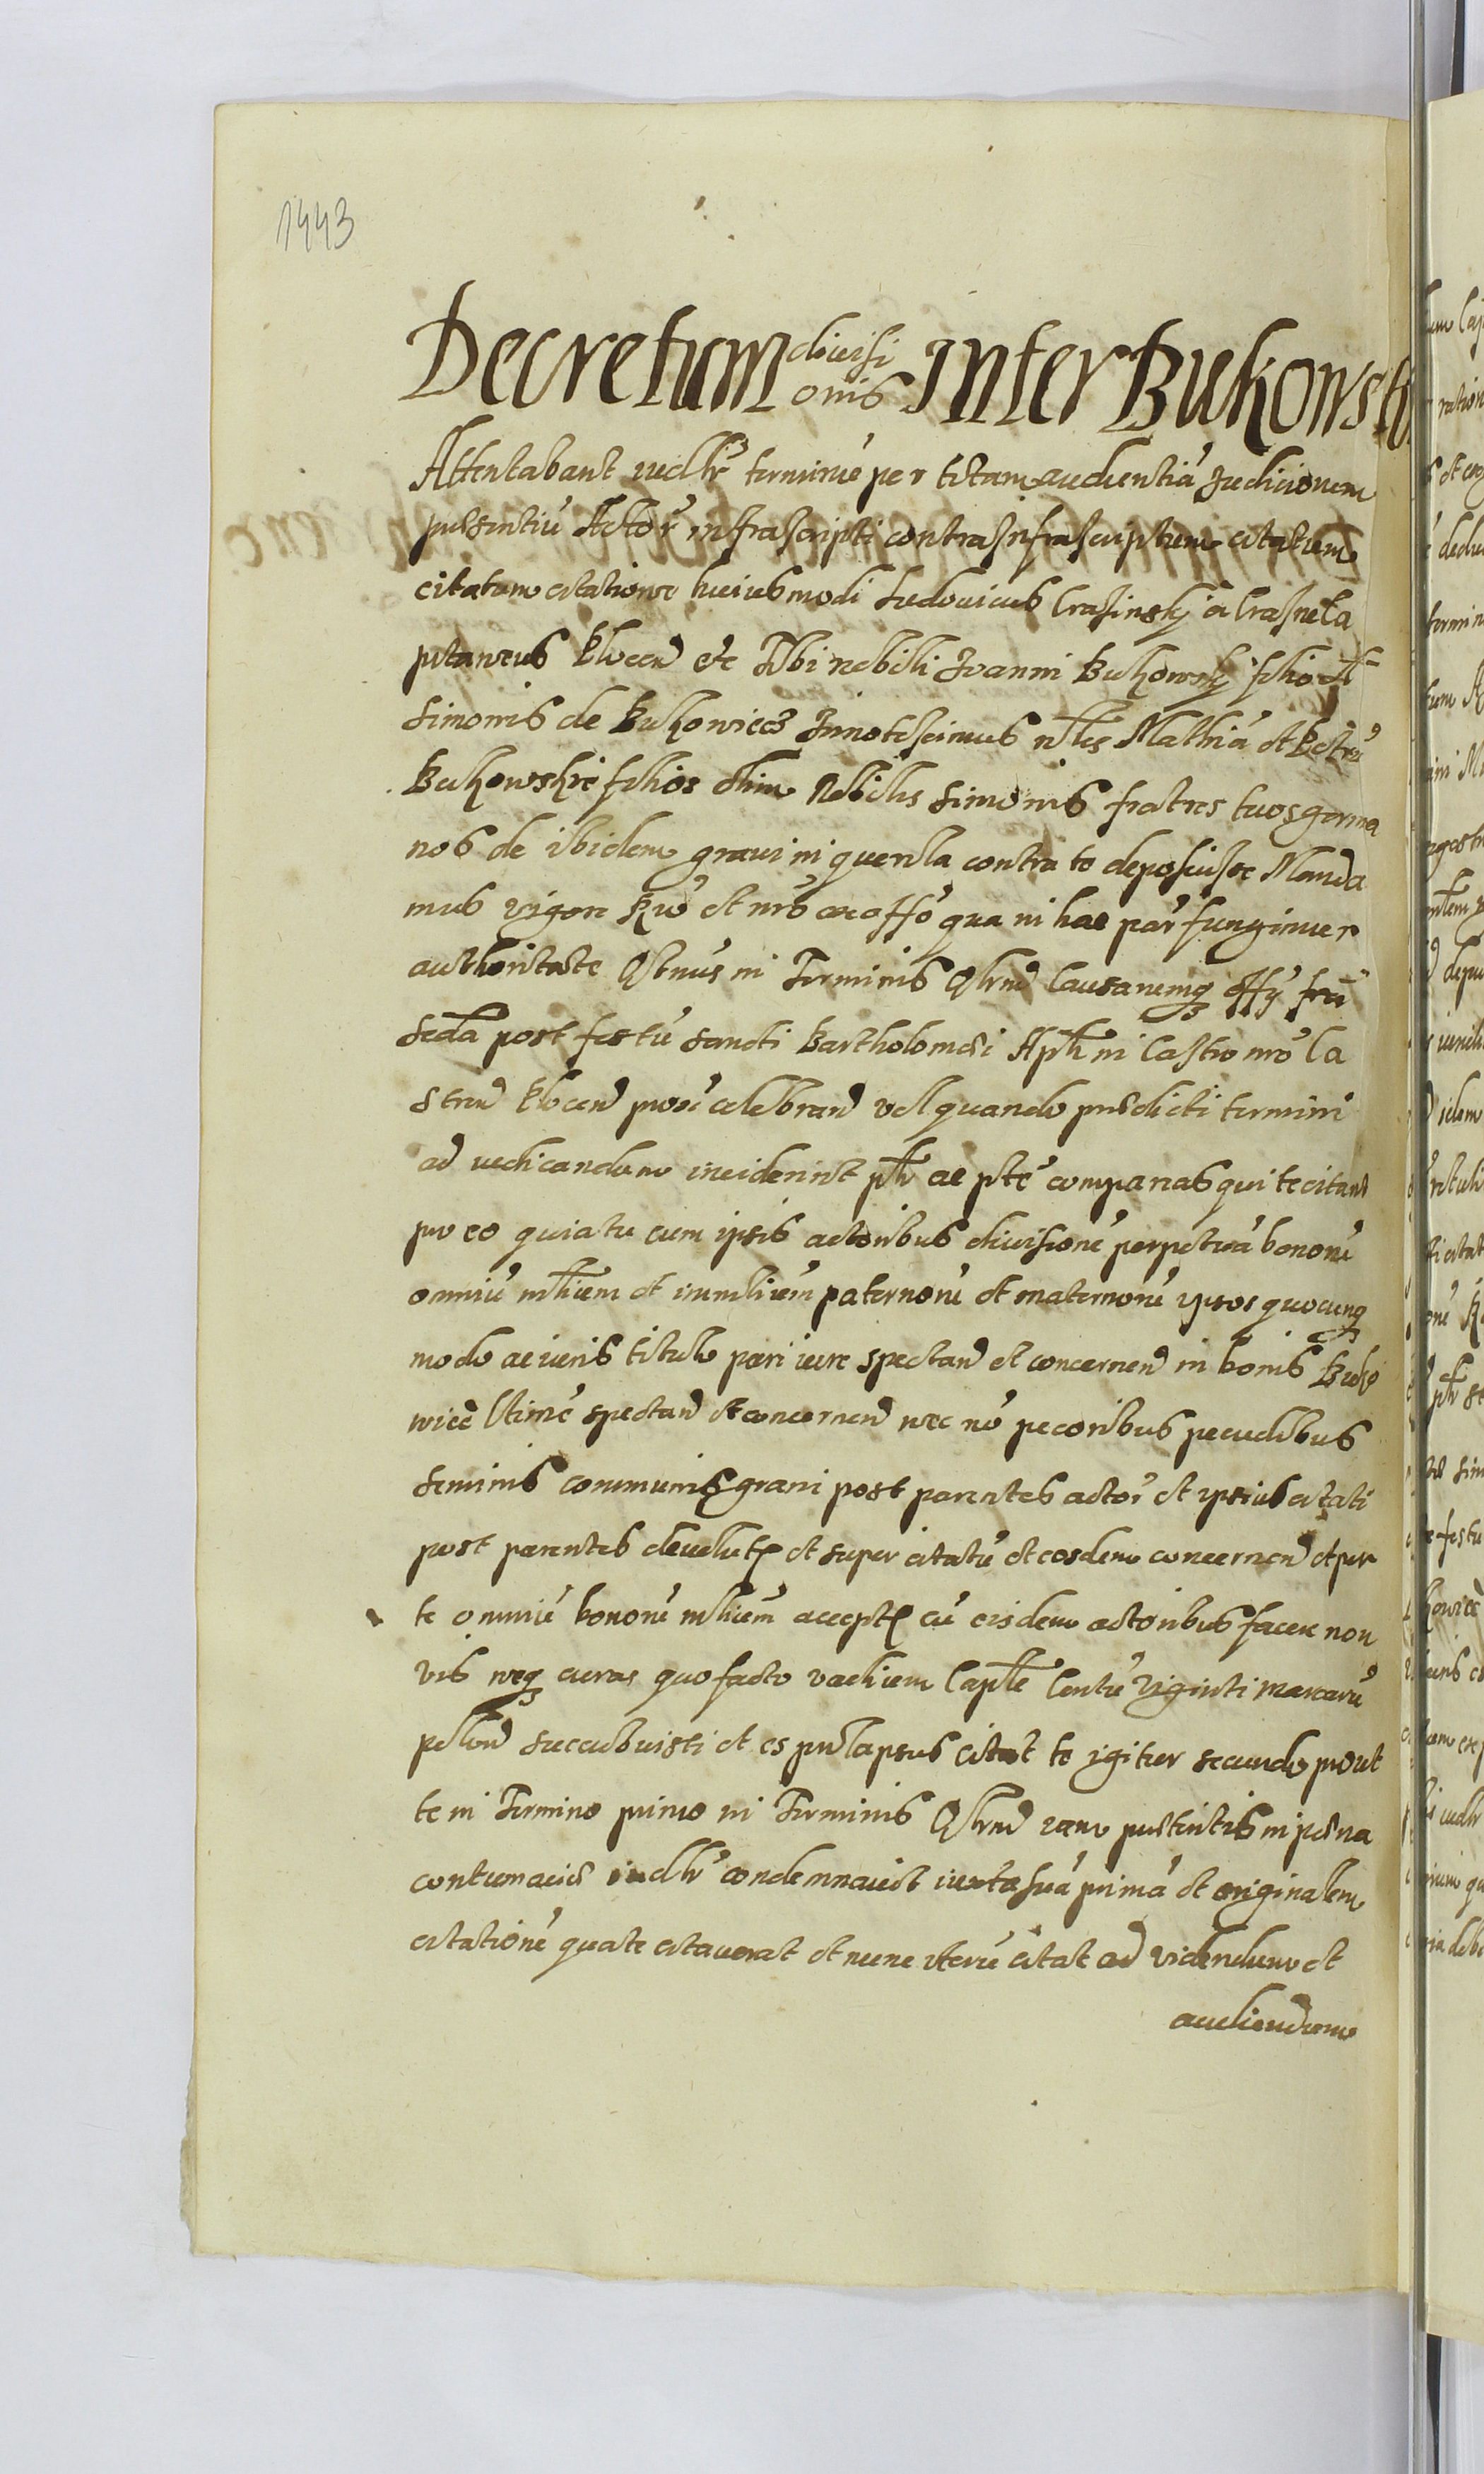 1443
Decretum divisi
onis Inter Bukows
Attentabant iudlr terminu per totam audientia Judiciorum
presentiu Actor infrascripti contra infrascriptum citatum
citatum citatione huiusmodi Ludovicus Crasinsky a Crasne Ca
pitaneus Plocen etc Tibi nobili Joanni Bukowsky filio
Simonis de Bukowiecz Innotescimus nbles Mathia et Petru
Bukowskie filios olim Nobilis Simonis fratres tuos germa
nos de ibidem gravi in querela contra te deposuisse Manda
mus vigore et nro ex offo qua in hac par fungimur
authoritate Qtenus in Terminis Qlrnd Causarumq offy fria
Secda post festu Sancti Bartholomei Apli in Castro nro Ca
stren Plocen prox celebrand vel quando predicti termini
ad iudicandum inciderint plr ac pte compareas qui te citant
pro eo quia tu cum ipsis actoribus divisione perpetua bonoru
omniu mbilium et immbilium paternoru et maternoru ipsos quocunq
modo ac iuris titulo pari iure spectand et concernend in bonis Buko
wiec ltime spectand et concernend nec no pecoribus pecudibus
seminis communis grani post parentes actor et ipsius citati
post parentes devolut et super citatu et eosdem concernend et per
te omniu bonoru mbilium accept cu eisdem actoribus facere non
vis neq curas quo facto vadium Caple Centu viginti marcaru
pcllon succubuisti et es prolapsus citat te igitur secundo prout
te in Termino primo in Terminis Qlrnd iam preteritis in pena
contumacie iudlr condemnavit iuxta sua prima et originalem
citatione qua te citaverat et nunc iteru citat ad videndum et
audiendum